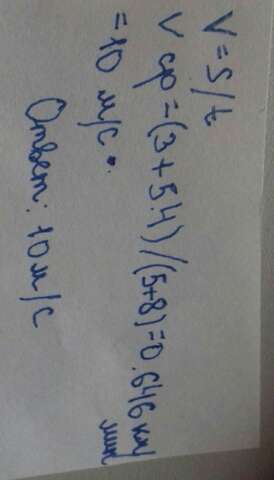 V = S/t
V ср = (3 + 5.4) / (5+8) = 0.646 км/мин
= 10 м/с.
Ответ: 10 м/с